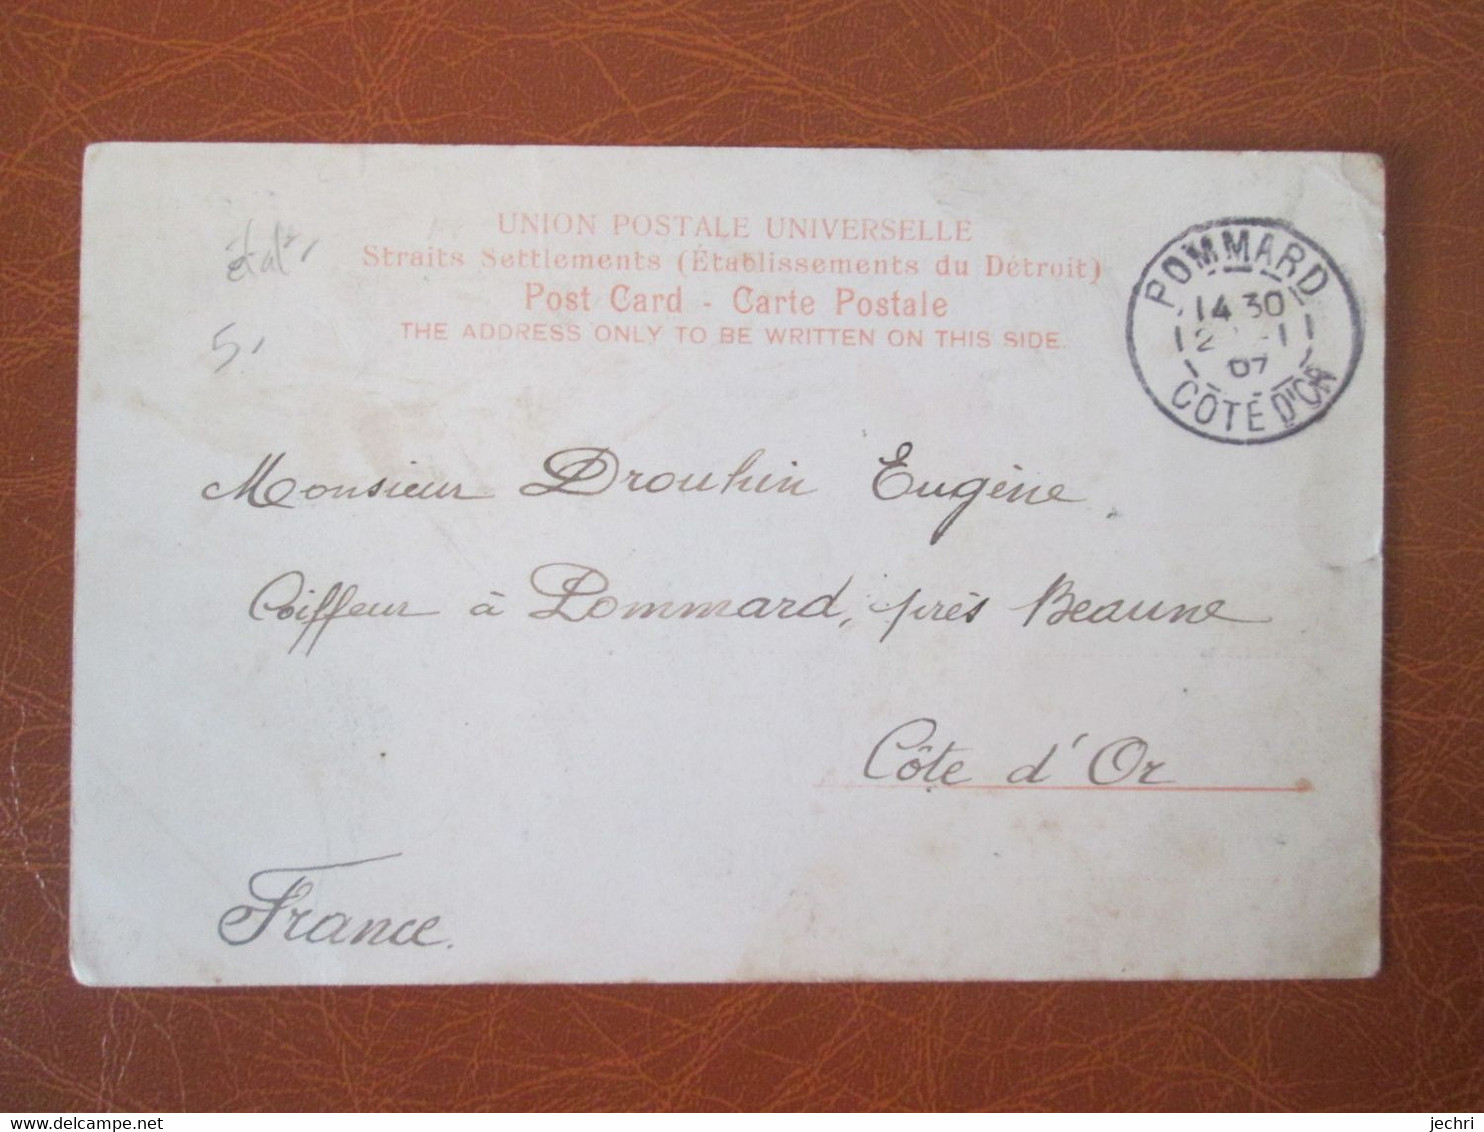 UNION POSTALE UNIVERSELLE
Straits Settlements (Établissements du Détroit)
Post Card - Carte Postale
THE ADDRESS ONLY TO BE WRITTEN ON THIS SIDE.
POMMARD
14 30
07
CÔTE D'OR
5.
Monsieur Drouhin Eugène
Coiffeur à Pommard, près Beaune
Côte d'Or
France.
delcampe.net
jechri